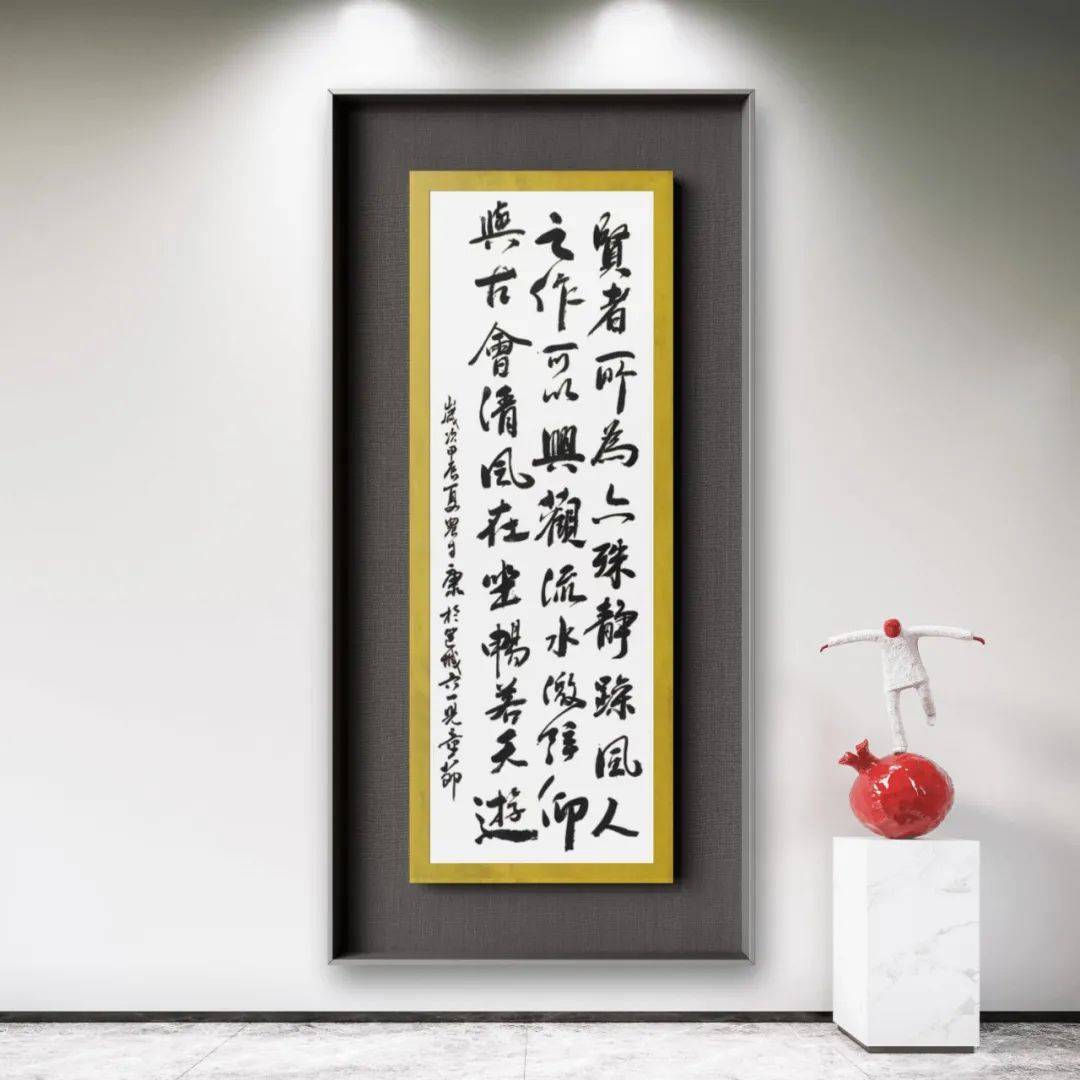 賢者所為亦殊靜躁風人
之作可以興觀流水激弦仰
與古會清風在坐暢若天遊
歲次甲辰夏康於城六一兒童節